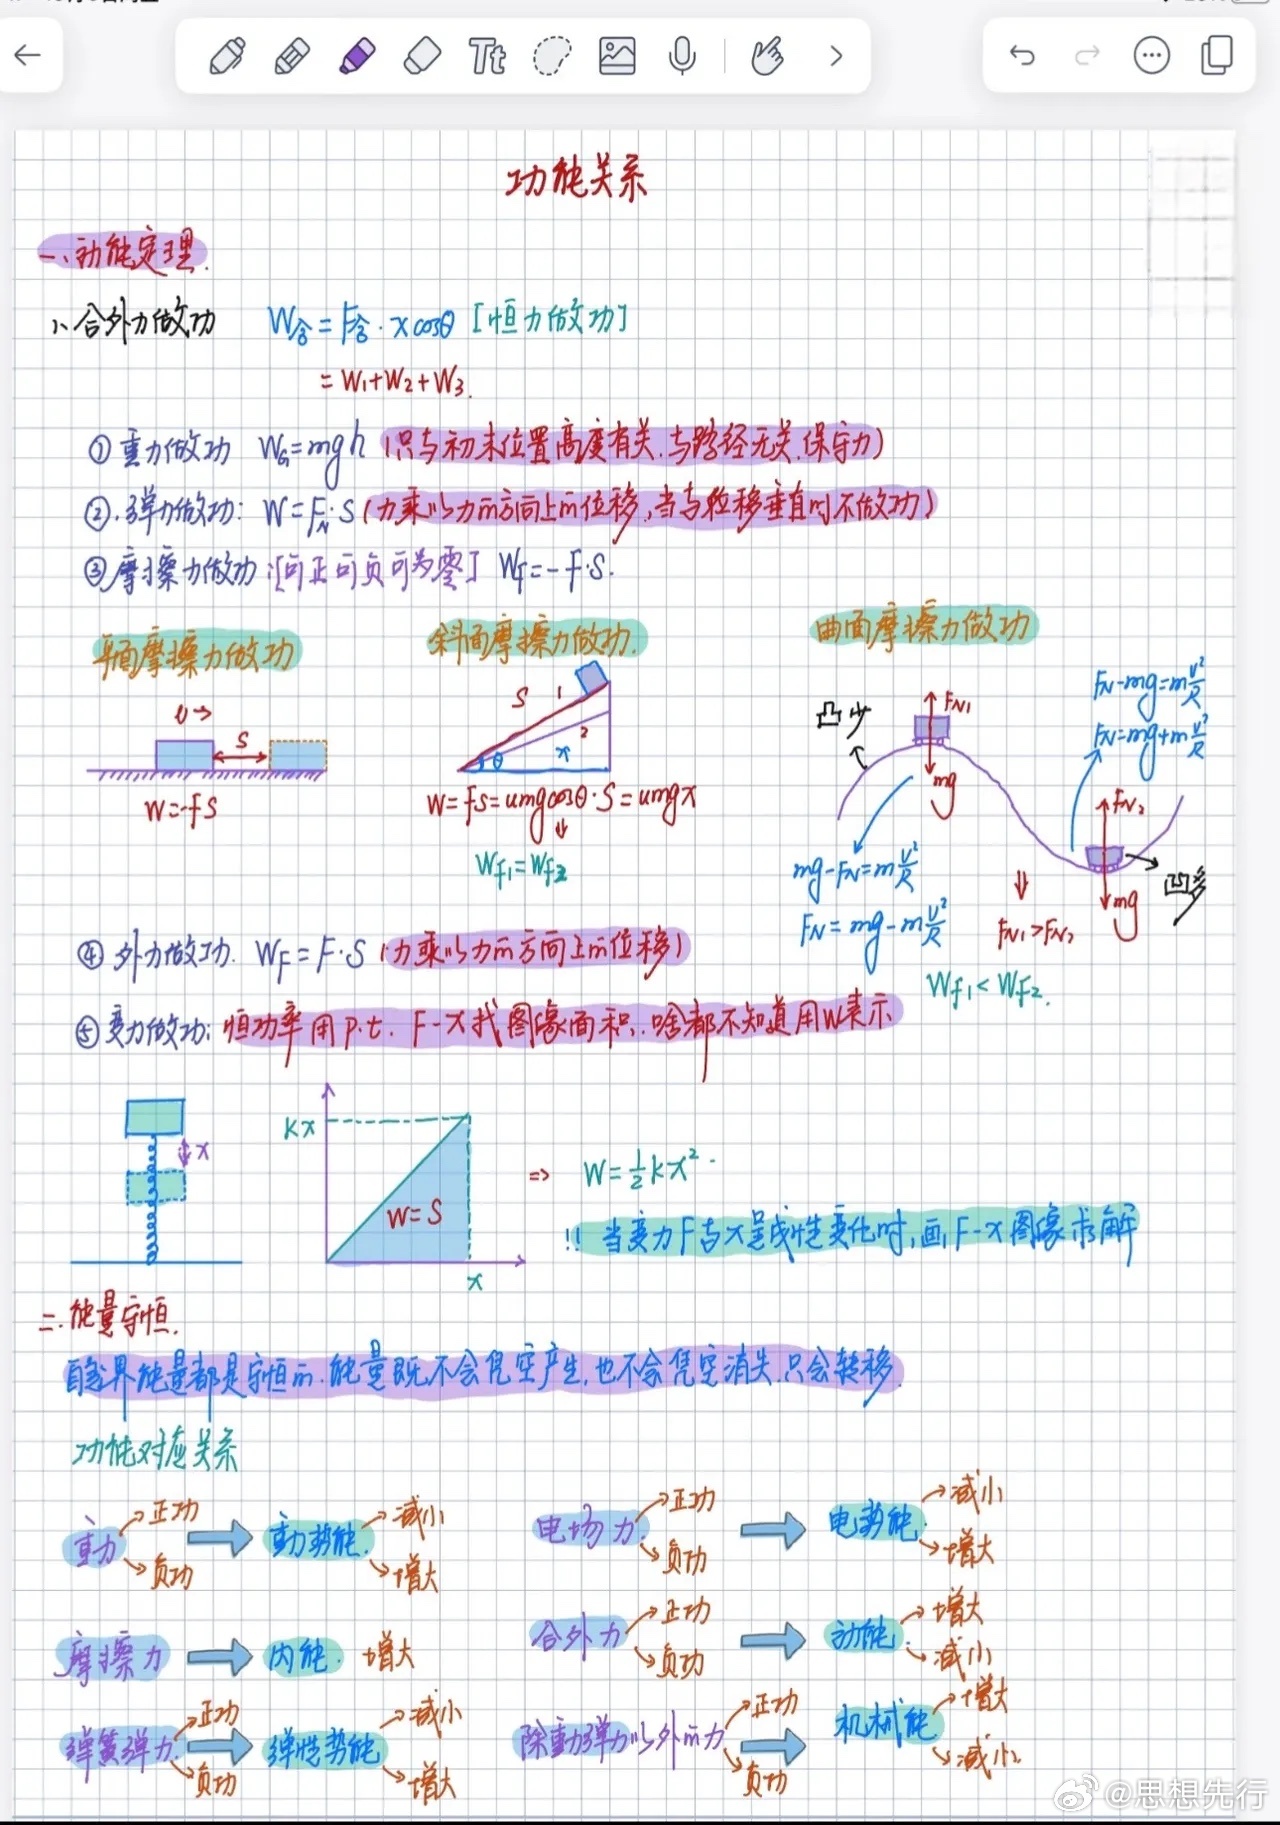 功能关系
一、动能定理.
1、合外力做功 W合=F合·xcosθ [恒力做功]
=W₁+W₂+W₃.
①重力做功 WG=mgh (只与初末位置高度有关.与路径无关.保守力)
②.弹力做功: W=FN·S (力乘以力的方向上的位移,当与位移垂直时不做功)
③摩擦力做功:[可正可负可为零] Wf=-F·S.
平面摩擦力做功 斜面摩擦力做功. 曲面摩擦力做功
υ→
S
W=-fS
S 1
2
θ x
W=fS=umgcosθ·S=umgx
Wf₁=Wf₂
凸少
FN₁
mg
FN-mg=mv²/R
FN=mg+mv²/R
mg-FN=mv²/R
FN=mg-mv²/R
FN₂
mg
凹多
FN₁>FN₂
Wf₁<Wf₂.
④外力做功. WF=F·S (力乘以力的方向上的位移)
⑤变力做功: 恒功率用p.t. F-x找图像面积.啥都不知道用W表示
x
kx
W=S
x
⇒ W=½kx².
!! 当变力F与x呈线性变化时,画F-x图像求解
二.能量守恒.
自然界能量都是守恒的.能量既不会凭空产生,也不会凭空消失.只会转移.
功能对应关系
重力 正功 负功 重力势能. 减小 增大
电场力 正功 负功 电势能. 减小 增大
摩擦力 内能. 增大
合外力 正功 负功 动能. 增大 减小
弹簧弹力 正功 负功 弹性势能 减小 增大
除重力弹力以外的力 正功 负功 机械能 增大 减小.
@思想先行